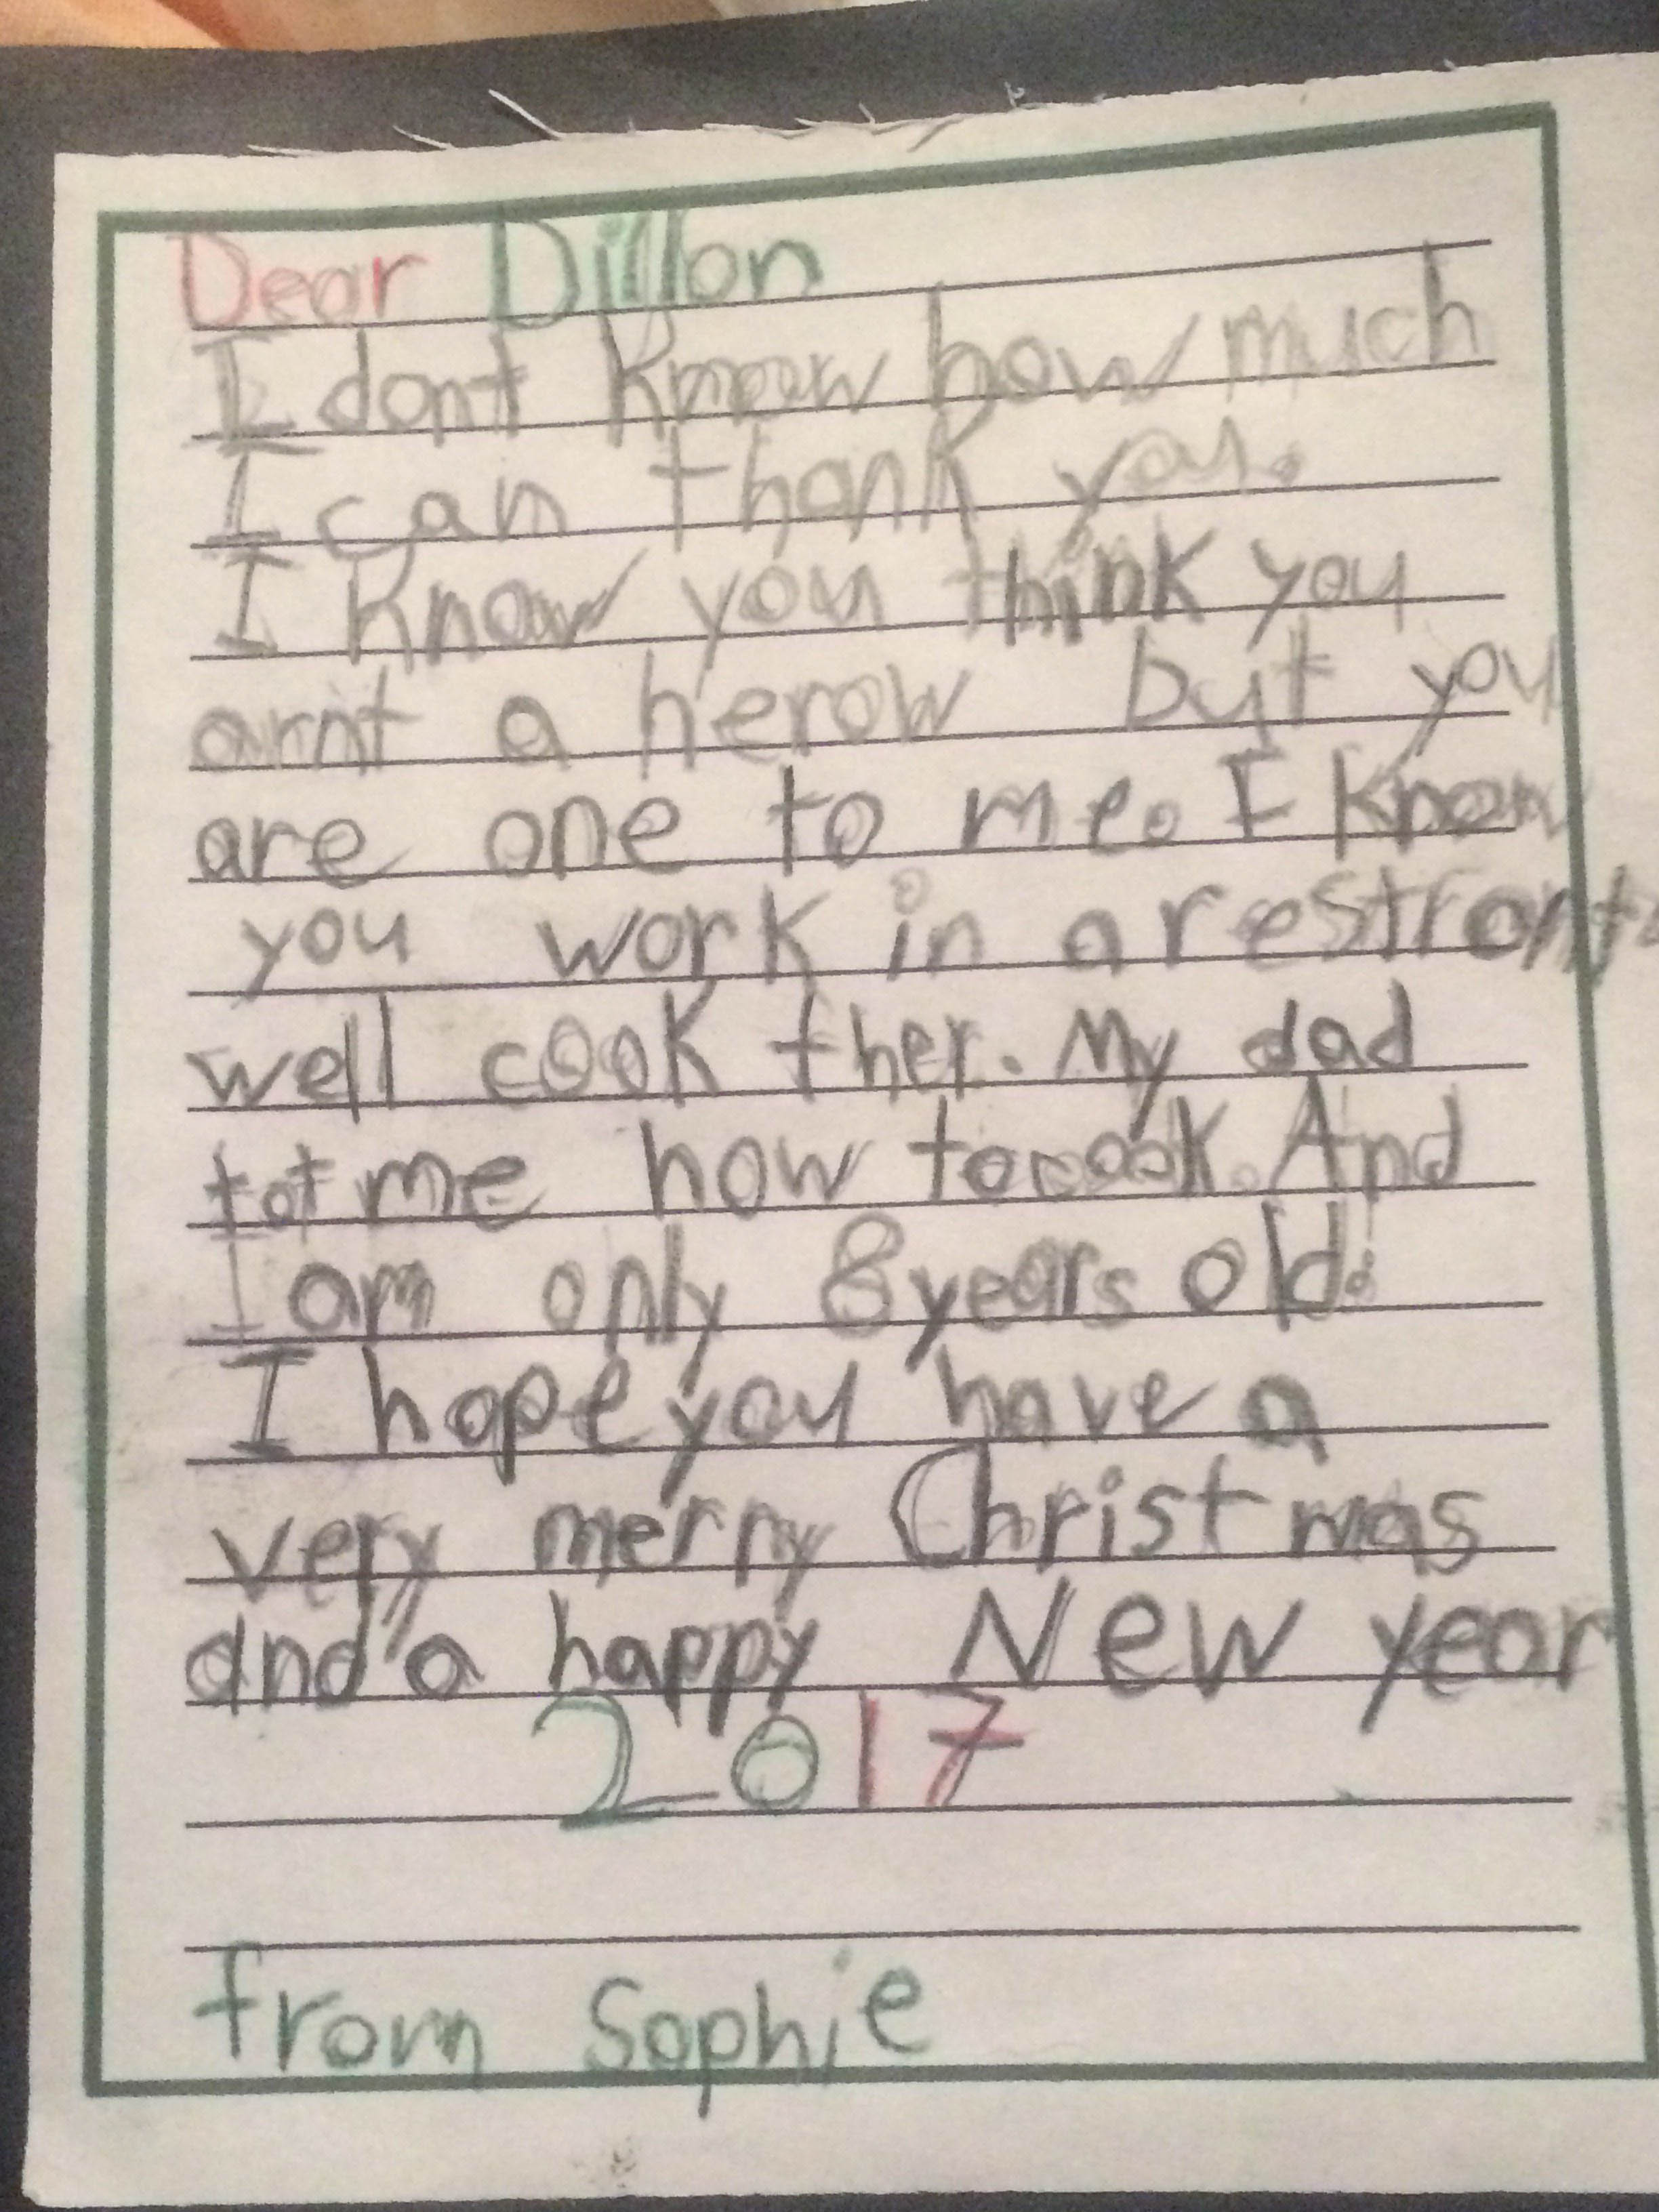 Dear Dillon
I dont know how much
I can thank you.
I know you think you
arnt a herow but you
are one to me. I know
you work in a restront
well cook ther. My dad
tot me how to cook. And
I am only 8 years old.
I hope you have a
very merry Christmas
and a happy New year
2017
from Sophie